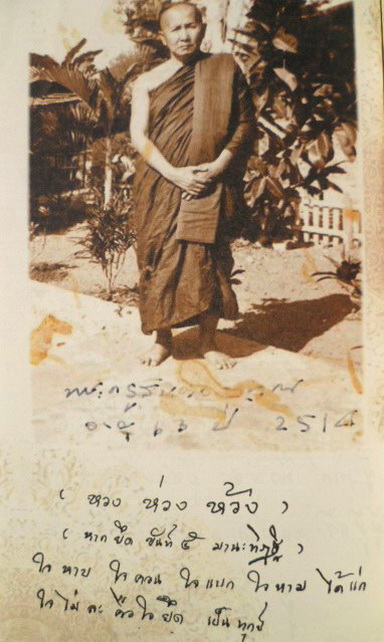 พระครู
อายุ ๖๓ ปี 2514
( หวง ห่วง หว้ง )
( หาก ยึด ขันท์ ๕ มานะทิฏฐิ )
ใจ หาบ ใจ คอน ใจ แบก ใจ หาม ได้แก่
ใจ ไม่ ละ คือ ใจ ยึด เป็น ทุกข์